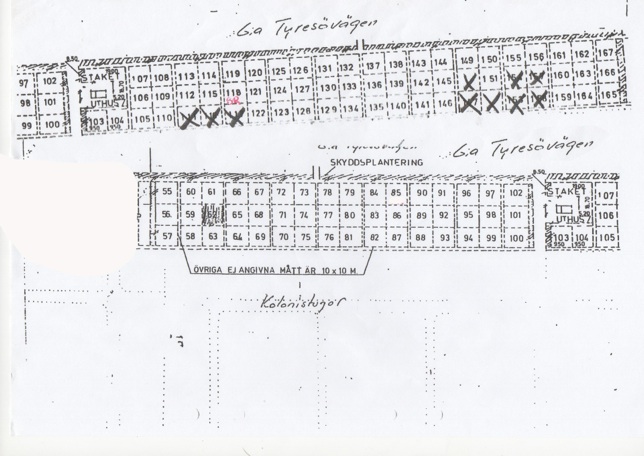 Ga Tyresövägen
8.50
97 102 TAKET 107 108 113 114 119 120 125 126 131 132 137 138 143 144 149 150 155 156 161 162 167
98 101 UTHUS 106 109 112 115 118 121 124 127 130 133 136 139 142 145 151 160 163 166
99 100 103 104 105 110 122 123 128 129 134 135 140 141 146 159 164 165
Ga Tyresövägen
SKYDDSPLANTERING
8.50
55 60 61 66 67 72 73 78 79 84 85 90 91 96 97 102 TAKET 107
56 59 62 65 68 71 74 77 80 83 86 89 92 95 98 101 UTHUS 106
57 58 63 64 69 70 75 76 81 82 87 88 93 94 99 100 103 104 105
ÖVRIGA EJ ANGIVNA MÅTT ÄR 10 x 10 M.
Kolonistugor